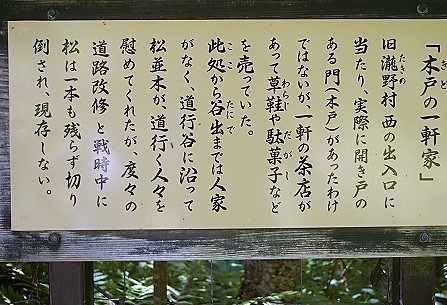 「木戸の一軒家」
きど
旧瀧野村 西の出入口に
たきの
当たり、実際に開き戸の
ある門(木戸)があったわけ
ではないが、一軒の茶店が
あって草鞋や駄菓子など
わらじ だがし
を売っていた。
此処から谷出までは人家
ここ たにで
がなく、道行谷に沿って
松並木が、道行く人々を
慰めてくれたが、度々の
道路改修 と戦時中に
松は一本も残らず切り
倒され、現存しない。